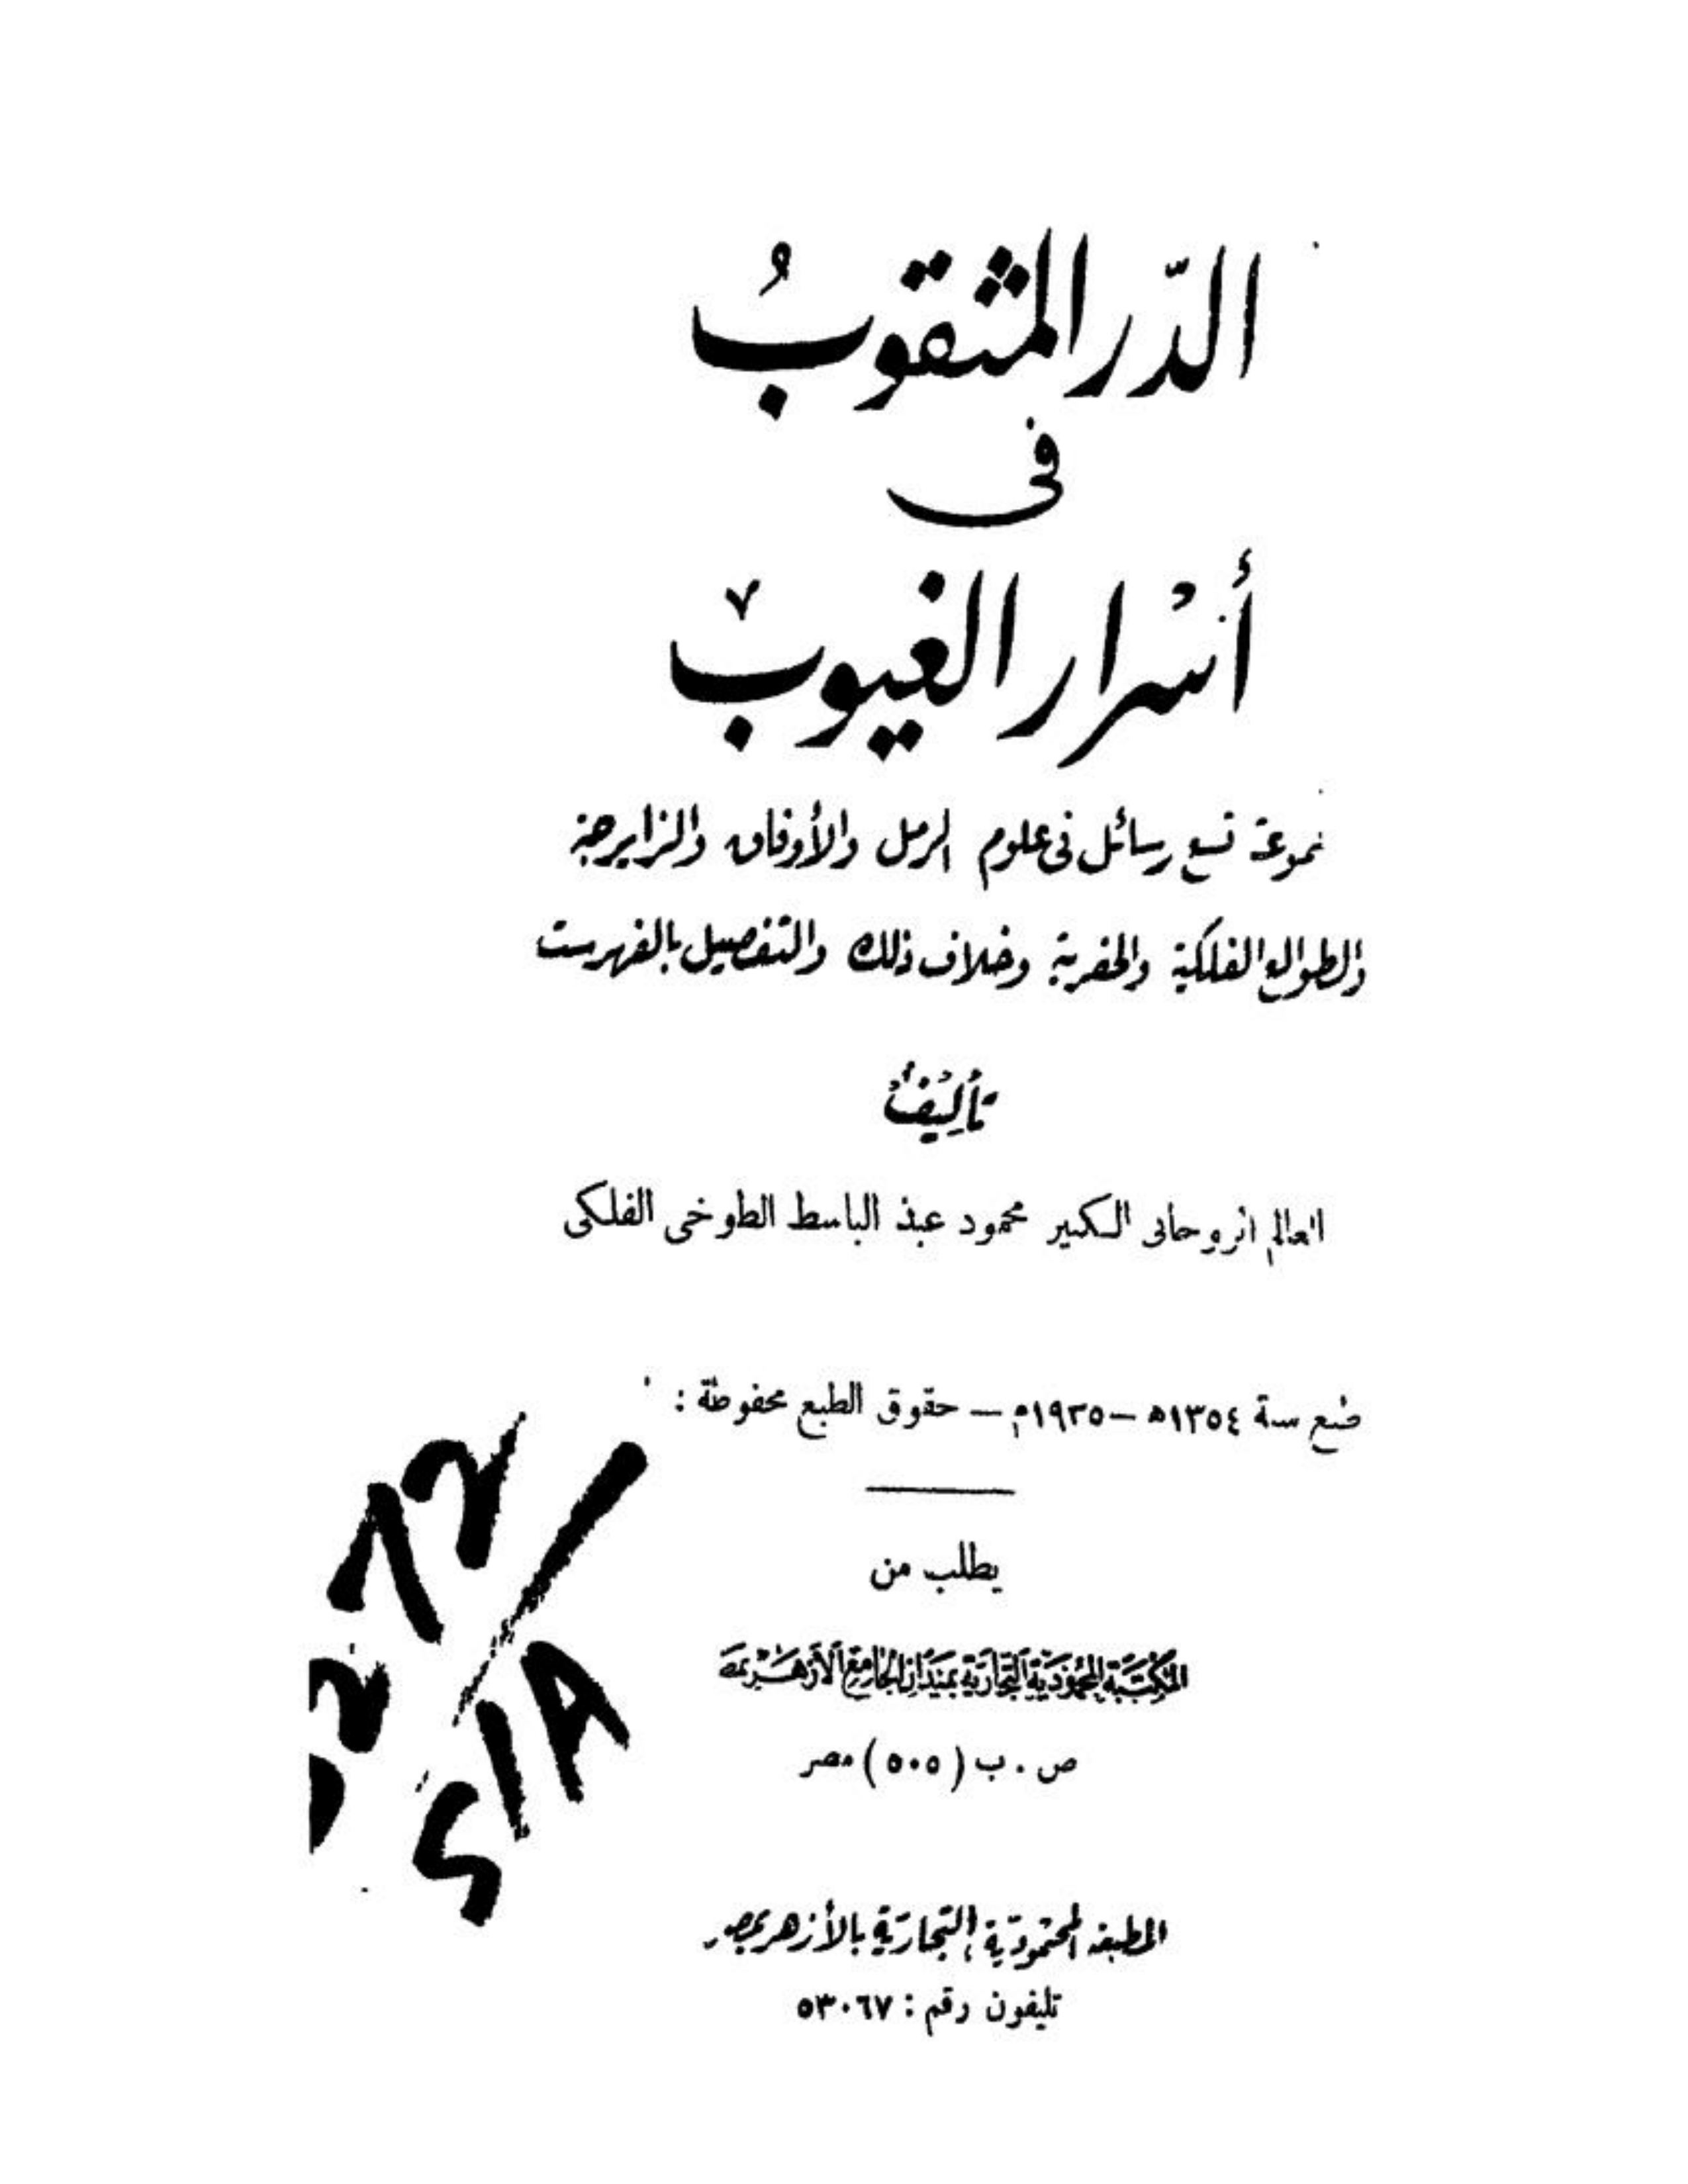 الدّر المثقوبُ
فى
أسْرار الغيوب
مجموعة تسع رسائل فى علوم الرمل والأوفاق والزايرجة
والطوالع الفلكية والجفرية وخلاف ذلك والتفصيل بالفهرست
تأليف
العالم الروحانى الكبير محمود عبد الباسط الطوخى الفلكى
طبع سنة ١٣٥٤ه – ١٩٣٥م – حقوق الطبع محفوظة :
يطلب من
المكتبة المحمودية التجارية بميدان الجامع الأزهر بمصر
ص . ب ( ٥٠٥ ) مصر
المطبعة المحمودية التجارية بالأزهر بمصر
تليفون رقم : ٥٣٠٦٧